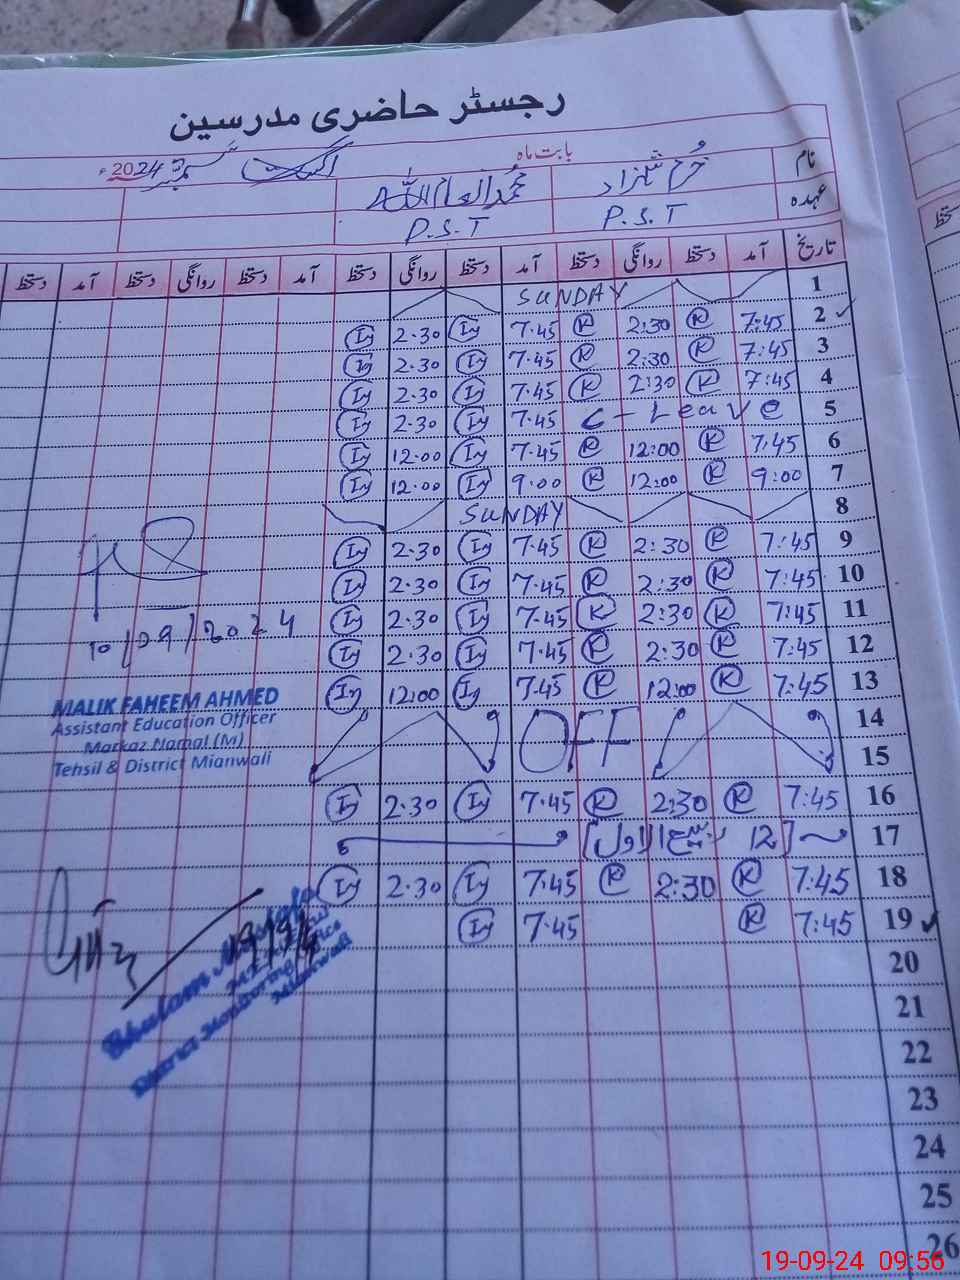 رجسٹر حاضری مدرسین
بابت ماہ ستمبر 2024ء
نام خرم شہزاد محمد انعام اللہ
عہدہ P.S.T P.S.T
تاریخ آمد دستخط روانگی دستخط آمد دستخط روانگی دستخط آمد دستخط روانگی دستخط آمد دستخط
1 SUNDAY
2 7:45 K 2:30 K 7.45 In 2.30 In
3 7:45 K 2:30 K 7.45 In 2.30 In
4 7:45 K 2:30 K 7.45 In 2.30 In
5 C-Leave 7.45 In 2.30 In
6 7.45 K 12:00 K 7.45 In 12.00 In
7 9:00 K 12:00 K 9.00 In 12.00 In
8 SUNDAY
9 7:45 K 2:30 K 7.45 In 2.30 In
10 7:45 K 2:30 K 7.45 In 2.30 In
11 7:45 K 2:30 K 7.45 In 2.30 In
12 7:45 K 2:30 K 7.45 In 2.30 In
13 7:45 K 12:00 K 7.45 In 12:00 In
14 OFF
15
16 7:45 K 2:30 K 7.45 In 2.30 In
17 [12 ربیع الاول]
18 7:45 K 2:30 K 7.45 In 2.30 In
19 7:45 K 7.45 In
20
21
22
23
24
25
26
10/09/2024
MALIK FAHEEM AHMED
Assistant Education Officer
Markaz Namal (M)
Tehsil & District Mianwali
Ghulam
District Monitoring Office
Mianwali
19-09-24 09:56